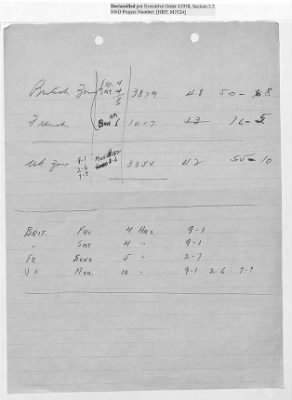 Declassified per Executive Order 12958, Section 3.5
NND Project Number: [HRP, M1924]
British Zone Fri. 4
Sat 4 3879 48 50-
8
French Sun 5 1017 13 16-5
US Zone 9-1 Mon 3354 42 50-10
2-6
7-9
BRIT. FRI 4 HRS 9-1
" SAT 4 " 9-1
FR SUND 5 " 2-7
US MON. 10 " 9-1 2-6 7-9